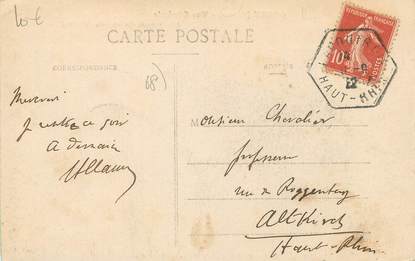 10€
CARTE POSTALE
CORRESPONDANCE
68)
REPUBLIQUE FRANÇAISE
10
POSTES
HAUT-RHIN
Mercredi
Je rentre ce soir
A demain
Monsieur Chevalier
Professeur
rue de Roggenberg
Altkirch
Haut-Rhin